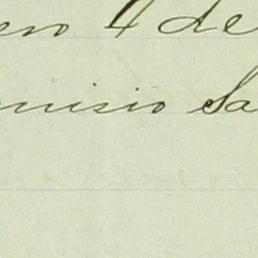 ero 4 de
nisio Sa